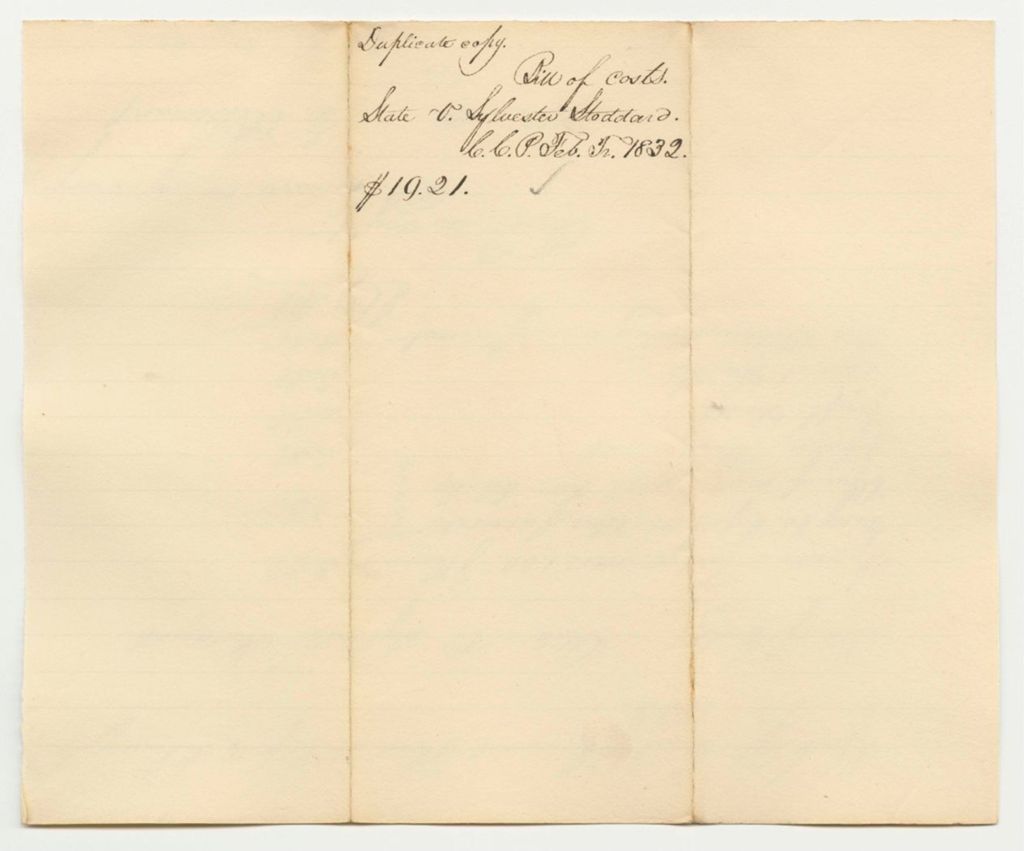 Duplicate copy.
Bill of costs.
State v. Sylvester Stoddard.
C.C.P. Feb. Tr. 1832.
$19.21.